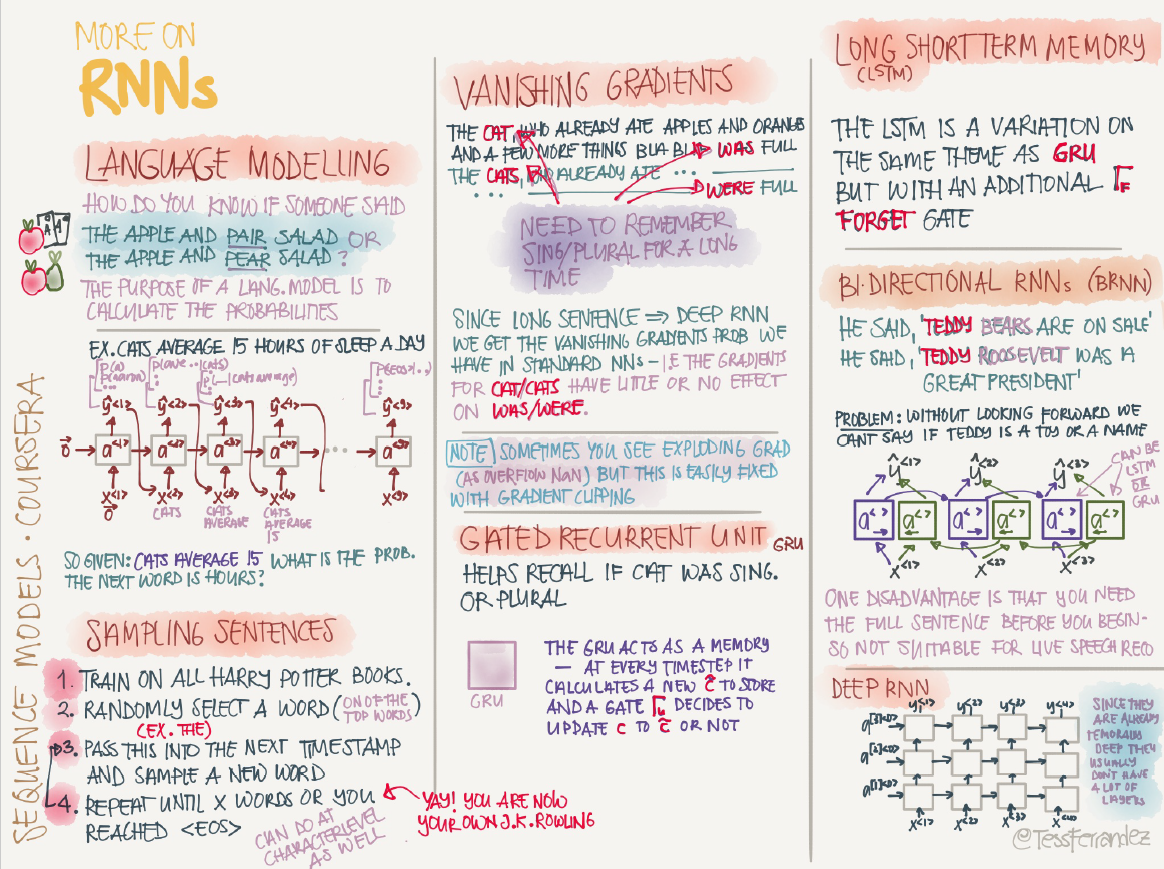 MORE ON
RNNs
LANGUAGE MODELLING
HOW DO YOU KNOW IF SOMEONE SAID
THE APPLE AND PAIR SALAD OR
THE APPLE AND PEAR SALAD?
THE PURPOSE OF A LANG. MODEL IS TO
CALCULATE THE PROBABILITIES
EX. CATS AVERAGE 15 HOURS OF SLEEP A DAY
P(a)
P(aaron)
P(ave..|cats)
P(__|cats average)
P(<EOS>|...)
ŷ<1> ŷ<2> ŷ<3> ŷ<4> ŷ<9>
0⃗ a<1> a<2> a<3> a<4> ... a<9>
x<1> x<2> x<3> x<4> x<9>
0⃗ CATS
CATS
AVERAGE
CATS
AVERAGE
15
SO GIVEN: CATS AVERAGE 15 WHAT IS THE PROB.
THE NEXT WORD IS HOURS?
SAMPLING SENTENCES
1. TRAIN ON ALL HARRY POTTER BOOKS.
2. RANDOMLY SELECT A WORD (ON OF THE
TOP WORDS)
(EX. THE)
3. PASS THIS INTO THE NEXT TIMESTAMP
AND SAMPLE A NEW WORD
4. REPEAT UNTIL X WORDS OR YOU
REACHED <EOS>
CAN DO AT
CHARACTERLEVEL
AS WELL
YAY! YOU ARE NOW
YOUR OWN J.K. ROWLING
SEQUENCE MODELS · COURSERA
VANISHING GRADIENTS
THE CAT, WHO ALREADY ATE APPLES AND ORANGE
AND A FEW MORE THINGS BLA BLA WAS FULL
THE CATS, WHO ALREADY ATE ...
... WERE FULL
NEED TO REMEMBER
SING/PLURAL FOR A LONG
TIME
SINCE LONG SENTENCE ⇒ DEEP RNN
WE GET THE VANISHING GRADIENTS PROB WE
HAVE IN STANDARD NNs - I.E THE GRADIENTS
FOR CAT/CATS HAVE LITTLE OR NO EFFECT
ON WAS/WERE.
NOTE SOMETIMES YOU SEE EXPLODING GRAD
(AS OVERFLOW NaN) BUT THIS IS EASILY FIXED
WITH GRADIENT CLIPPING
GATED RECURRENT UNIT GRU
HELPS RECALL IF CAT WAS SING.
OR PLURAL
GRU
THE GRU ACTS AS A MEMORY
— AT EVERY TIMESTEP IT
CALCULATES A NEW c̃ TO STORE
AND A GATE Γu DECIDES TO
UPDATE C TO c̃ OR NOT
LONG SHORT TERM MEMORY
(LSTM)
THE LSTM IS A VARIATION ON
THE SAME THEME AS GRU
BUT WITH AN ADDITIONAL ΓF
FORGET GATE
BI·DIRECTIONAL RNNs (BRNN)
HE SAID, 'TEDDY BEARS ARE ON SALE'
HE SAID, 'TEDDY ROOSEVELT WAS A
GREAT PRESIDENT'
PROBLEM: WITHOUT LOOKING FORWARD WE
CANT SAY IF TEDDY IS A TOY OR A NAME
ŷ<1> ŷ<2> ŷ<3>
CAN BE
LSTM
OR
GRU
a<> a<> a<> a<> a<> a<>
x<1> x<2> x<3>
ONE DISADVANTAGE IS THAT YOU NEED
THE FULL SENTENCE BEFORE YOU BEGIN-
SO NOT SUITABLE FOR LIVE SPEECH RECO
DEEP RNN
y<1> y<2> y<3> y<4>
a[3]<0>
a[2]<0>
a[1]<0>
x<1> x<2> x<3> x<4>
SINCE THEY
ARE ALREADY
TEMORALLY
DEEP THEY
USUALLY
DON'T HAVE
A LOT OF
LAYERS
@TessFerrandez